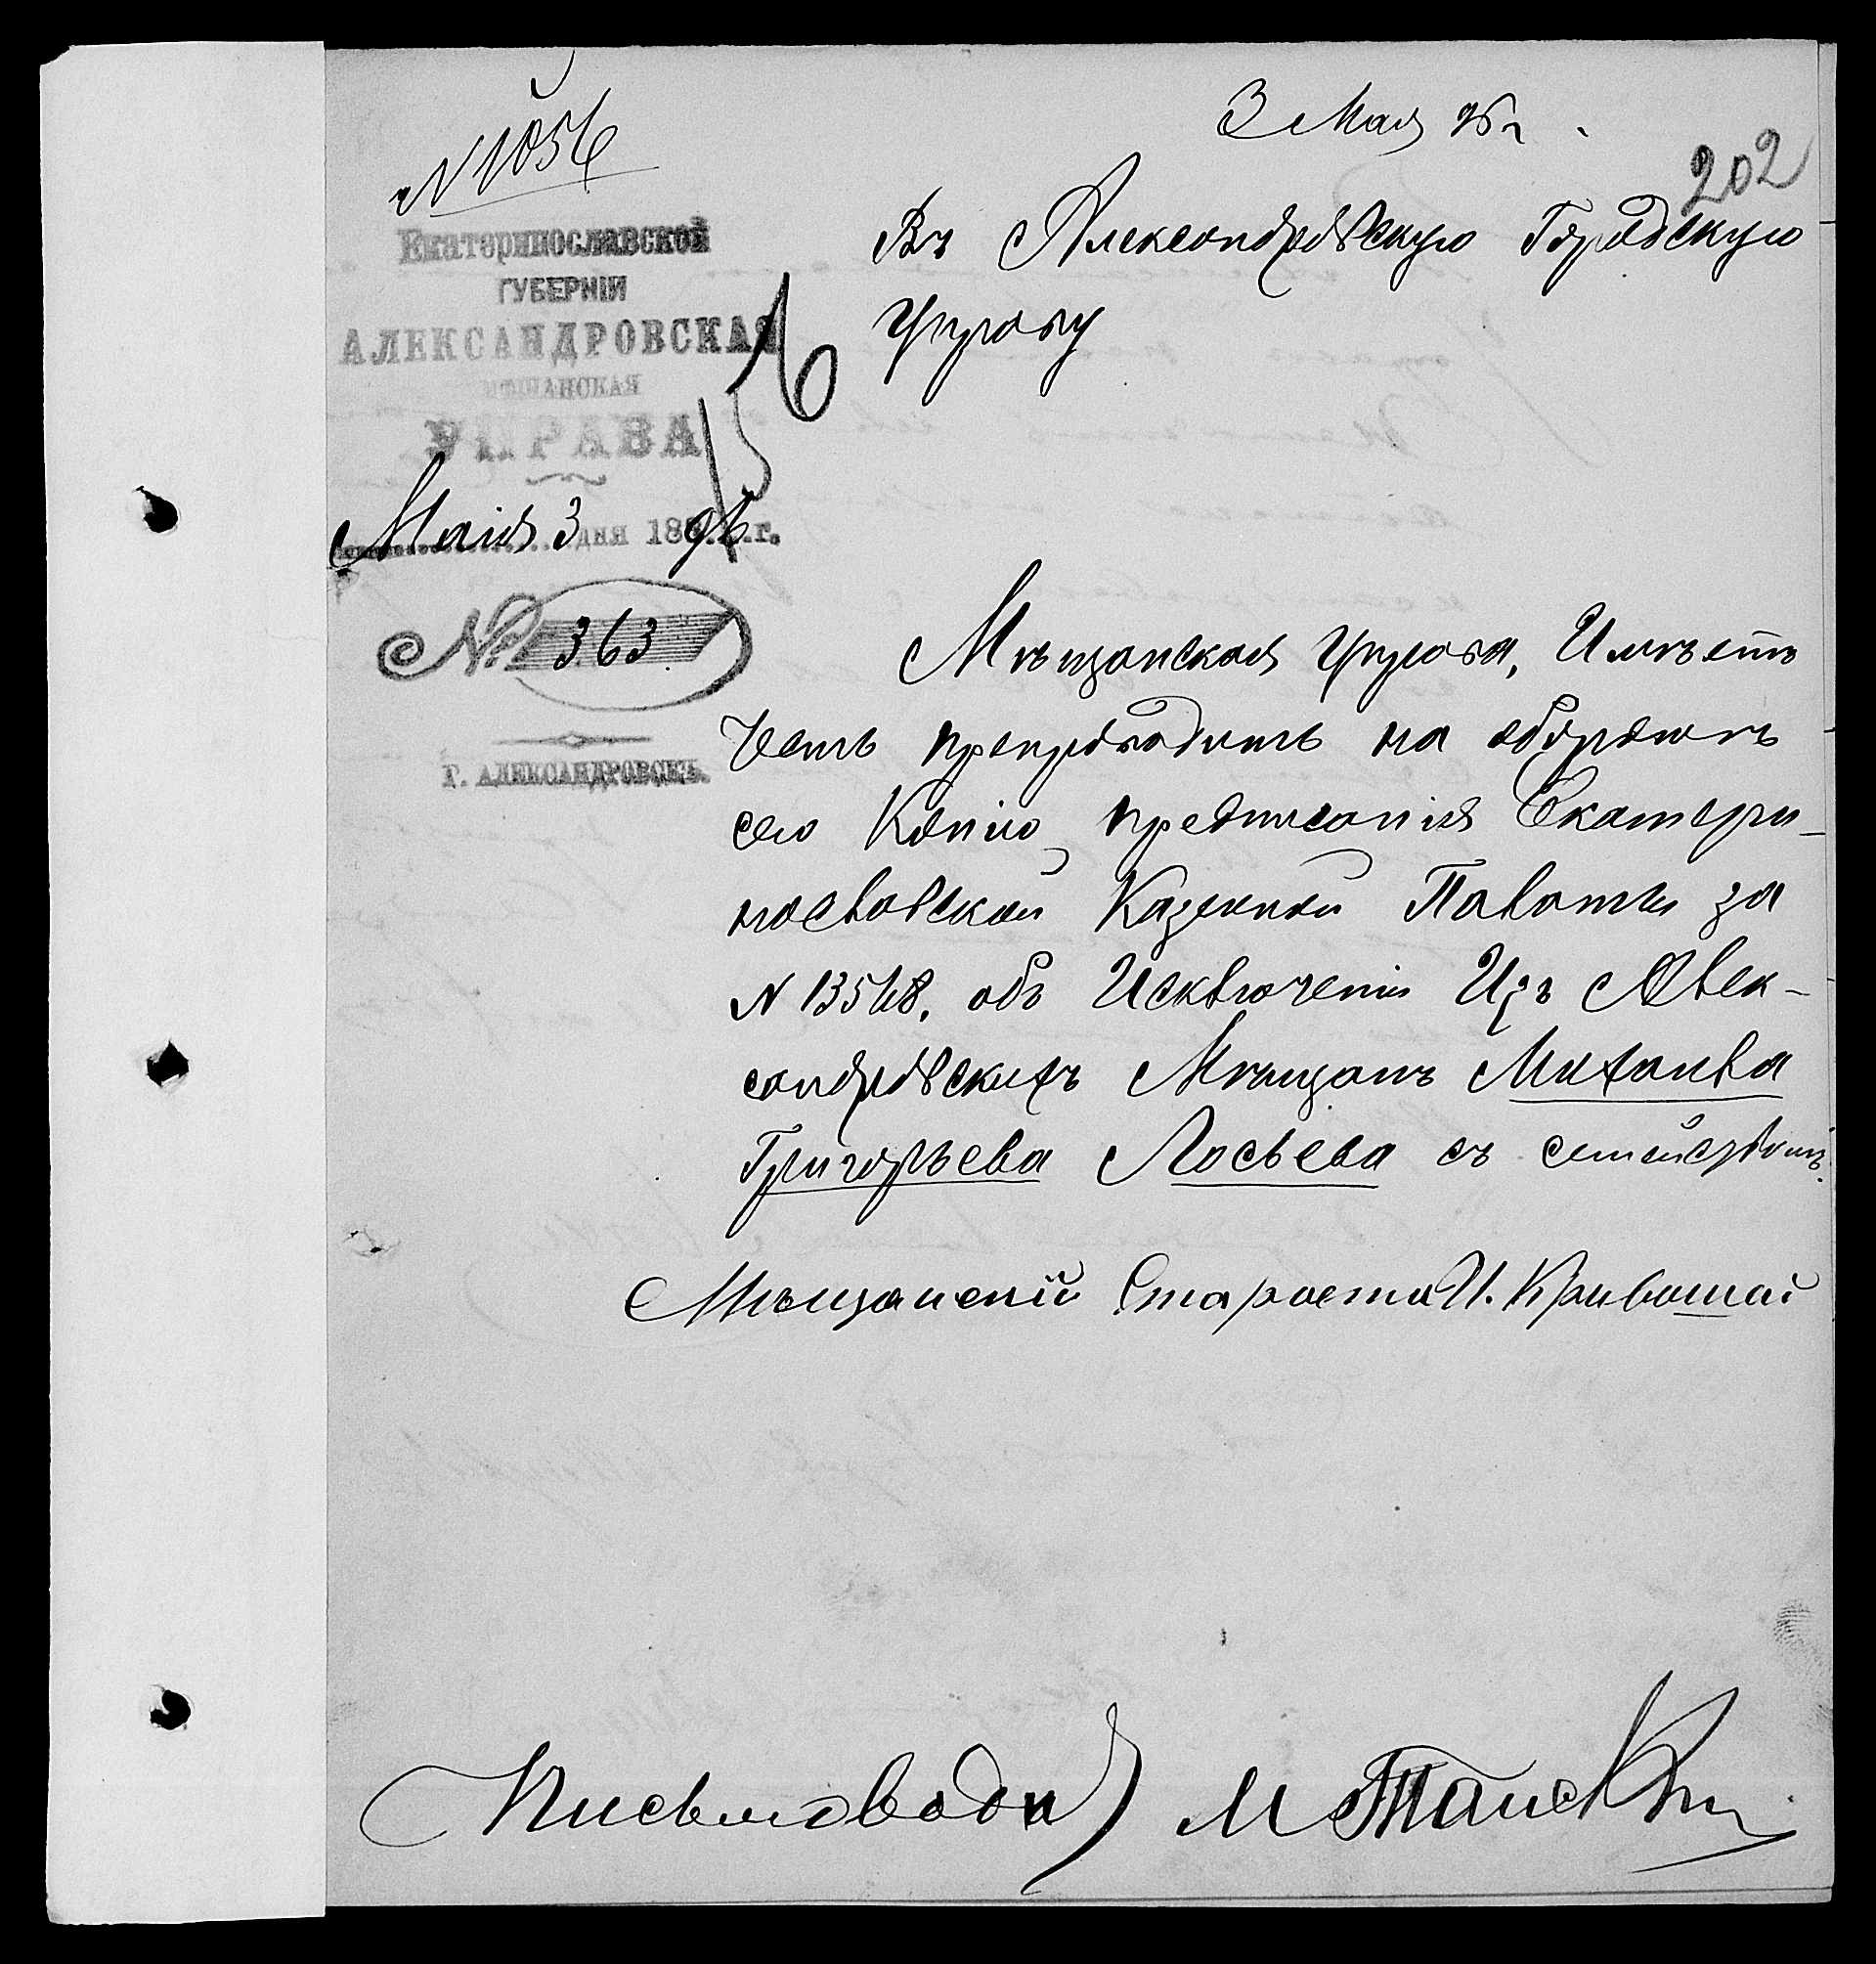 № 1056
3 Мая 96 г.
202
Екатеринославской
ГУБЕРНІИ
АЛЕКСАНДРОВСКАЯ
МѢЩАНСКАЯ
УПРАВА
Мая 3 дня 1896 г.
№ 363
Г. АЛЕКСАНДРОВСКЪ.
156
Въ Александровскую Городскую
Управу
Мѣщанская Управа, Имѣетъ
честь препроводить на оборотѣ
сего Копію предписанія Екатери-
нославской Казенной Палаты за
№ 13548, объ Исключеніи Изъ Алек-
сандровскихъ Мѣщанъ Михаила
Григорьева Лосьева съ семействомъ.
Мѣщанскій Староста И. Кривошай
Письмоводи М